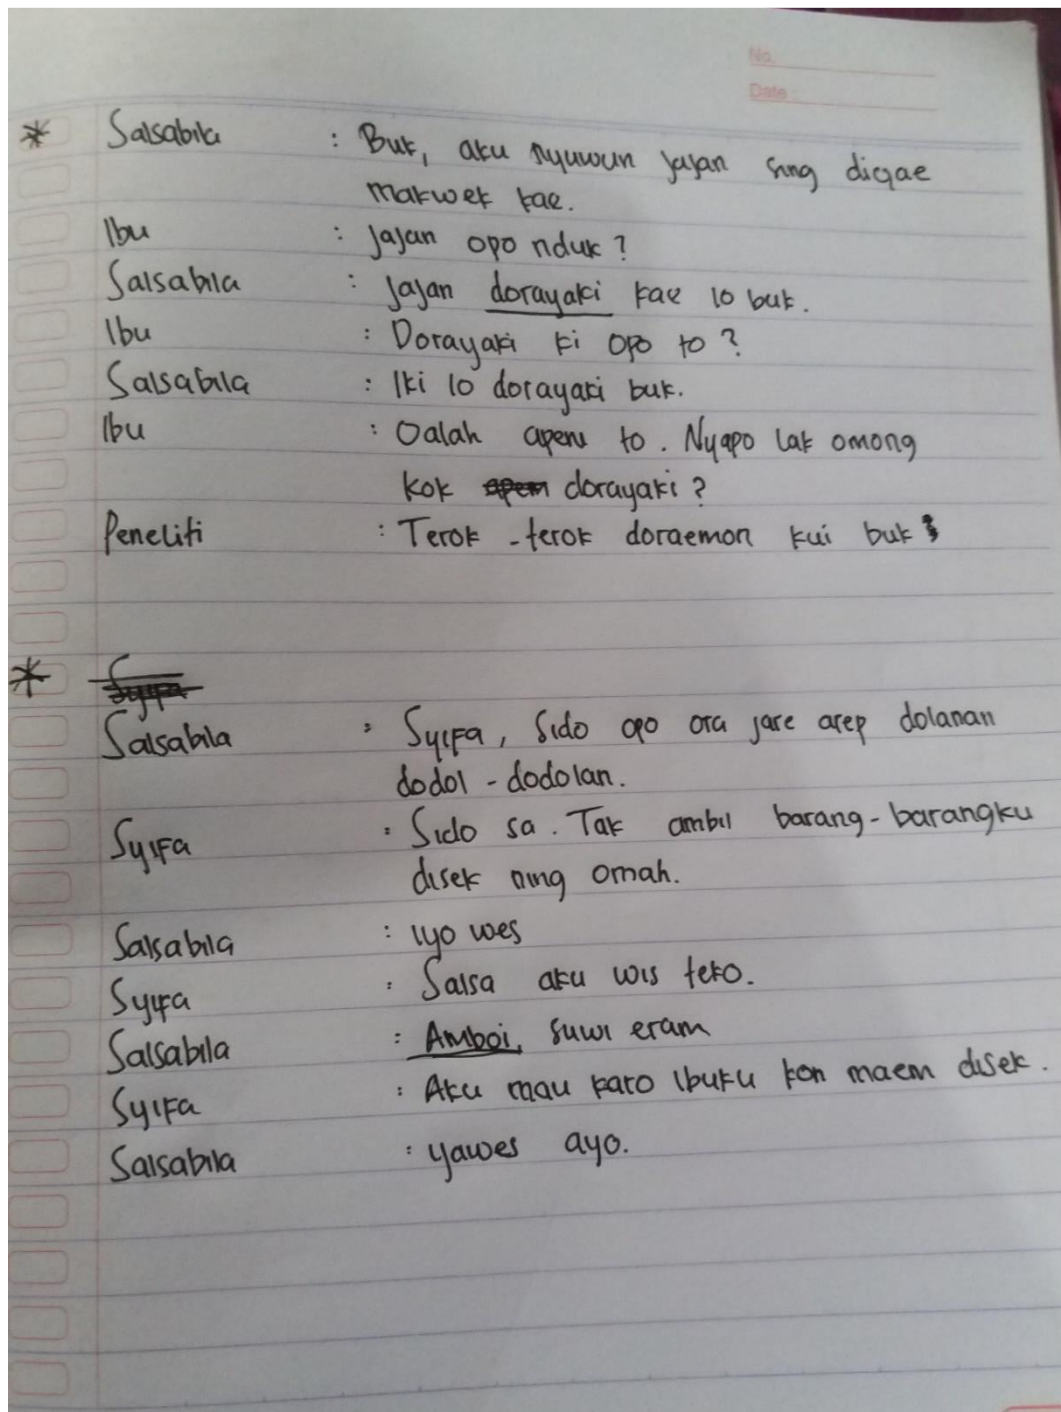 No.
Date :
* Salsabila : Buk, aku nyuwun jajan sing digae
makwek kae.
Ibu : Jajan opo nduk?
Salsabila : Jajan dorayaki kae lo buk.
Ibu : Dorayaki ki opo to?
Salsabila : Iki lo dorayaki buk.
Ibu : Oalah apem to. Nyapo lak omong
kok apem dorayaki?
Peneliti : Terok-terok doraemon kui buk
* Syifa
Salsabila : Syifa, Sido opo ora jare arep dolanan
dodol-dodolan.
Syifa : Sido sa. Tak ambil barang-barangku
disek ning omah.
Salsabila : iyo wes
Syifa : Salsa aku wis teko.
Salsabila : Amboi, suwi eram
Syifa : Aku mau karo ibuku kon maem disek.
Salsabila : yawes ayo.